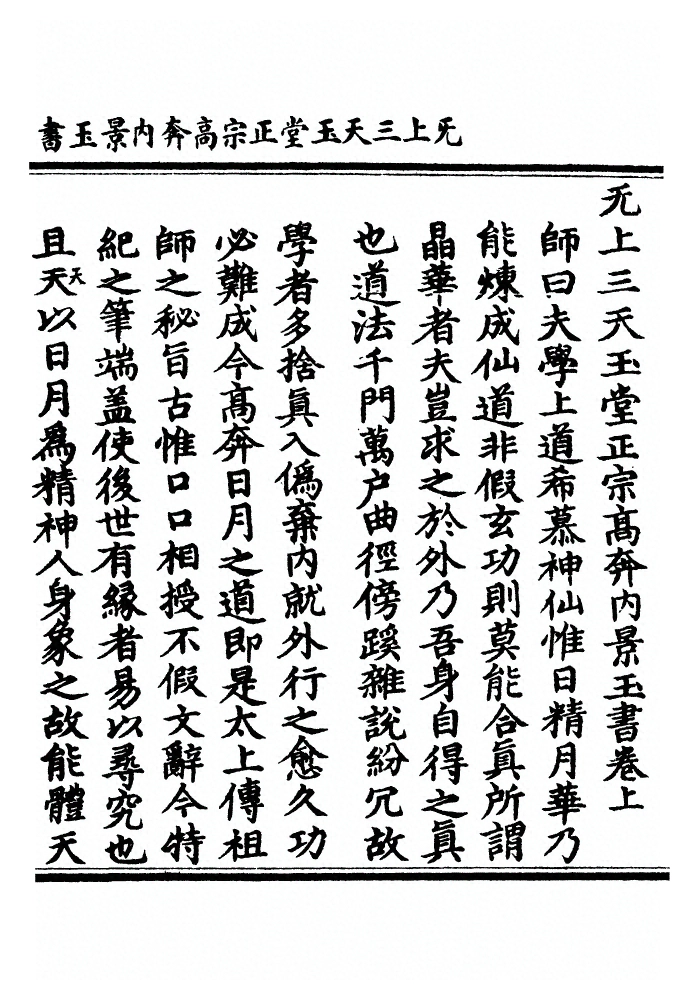 无上三天玉堂正宗高奔內景玉書
无上三天玉堂正宗髙奔内景玉書卷上
師曰夫學上道希慕神仙惟日精月華乃
能煉成仙道非假玄功則莫能合眞所謂
晶華者夫豈求之於外乃吾身自得之眞
也道法千門萬户曲徑傍蹊雜說紛冗故
學者多捨眞入僞棄内就外行之愈久功
必難成今髙奔日月之道即是太上傳祖
師之秘旨古惟口口相授不假文辭今特
紀之筆端盖使後世有縁者易以尋究也
且天天以日月爲精神人身象之故能體天